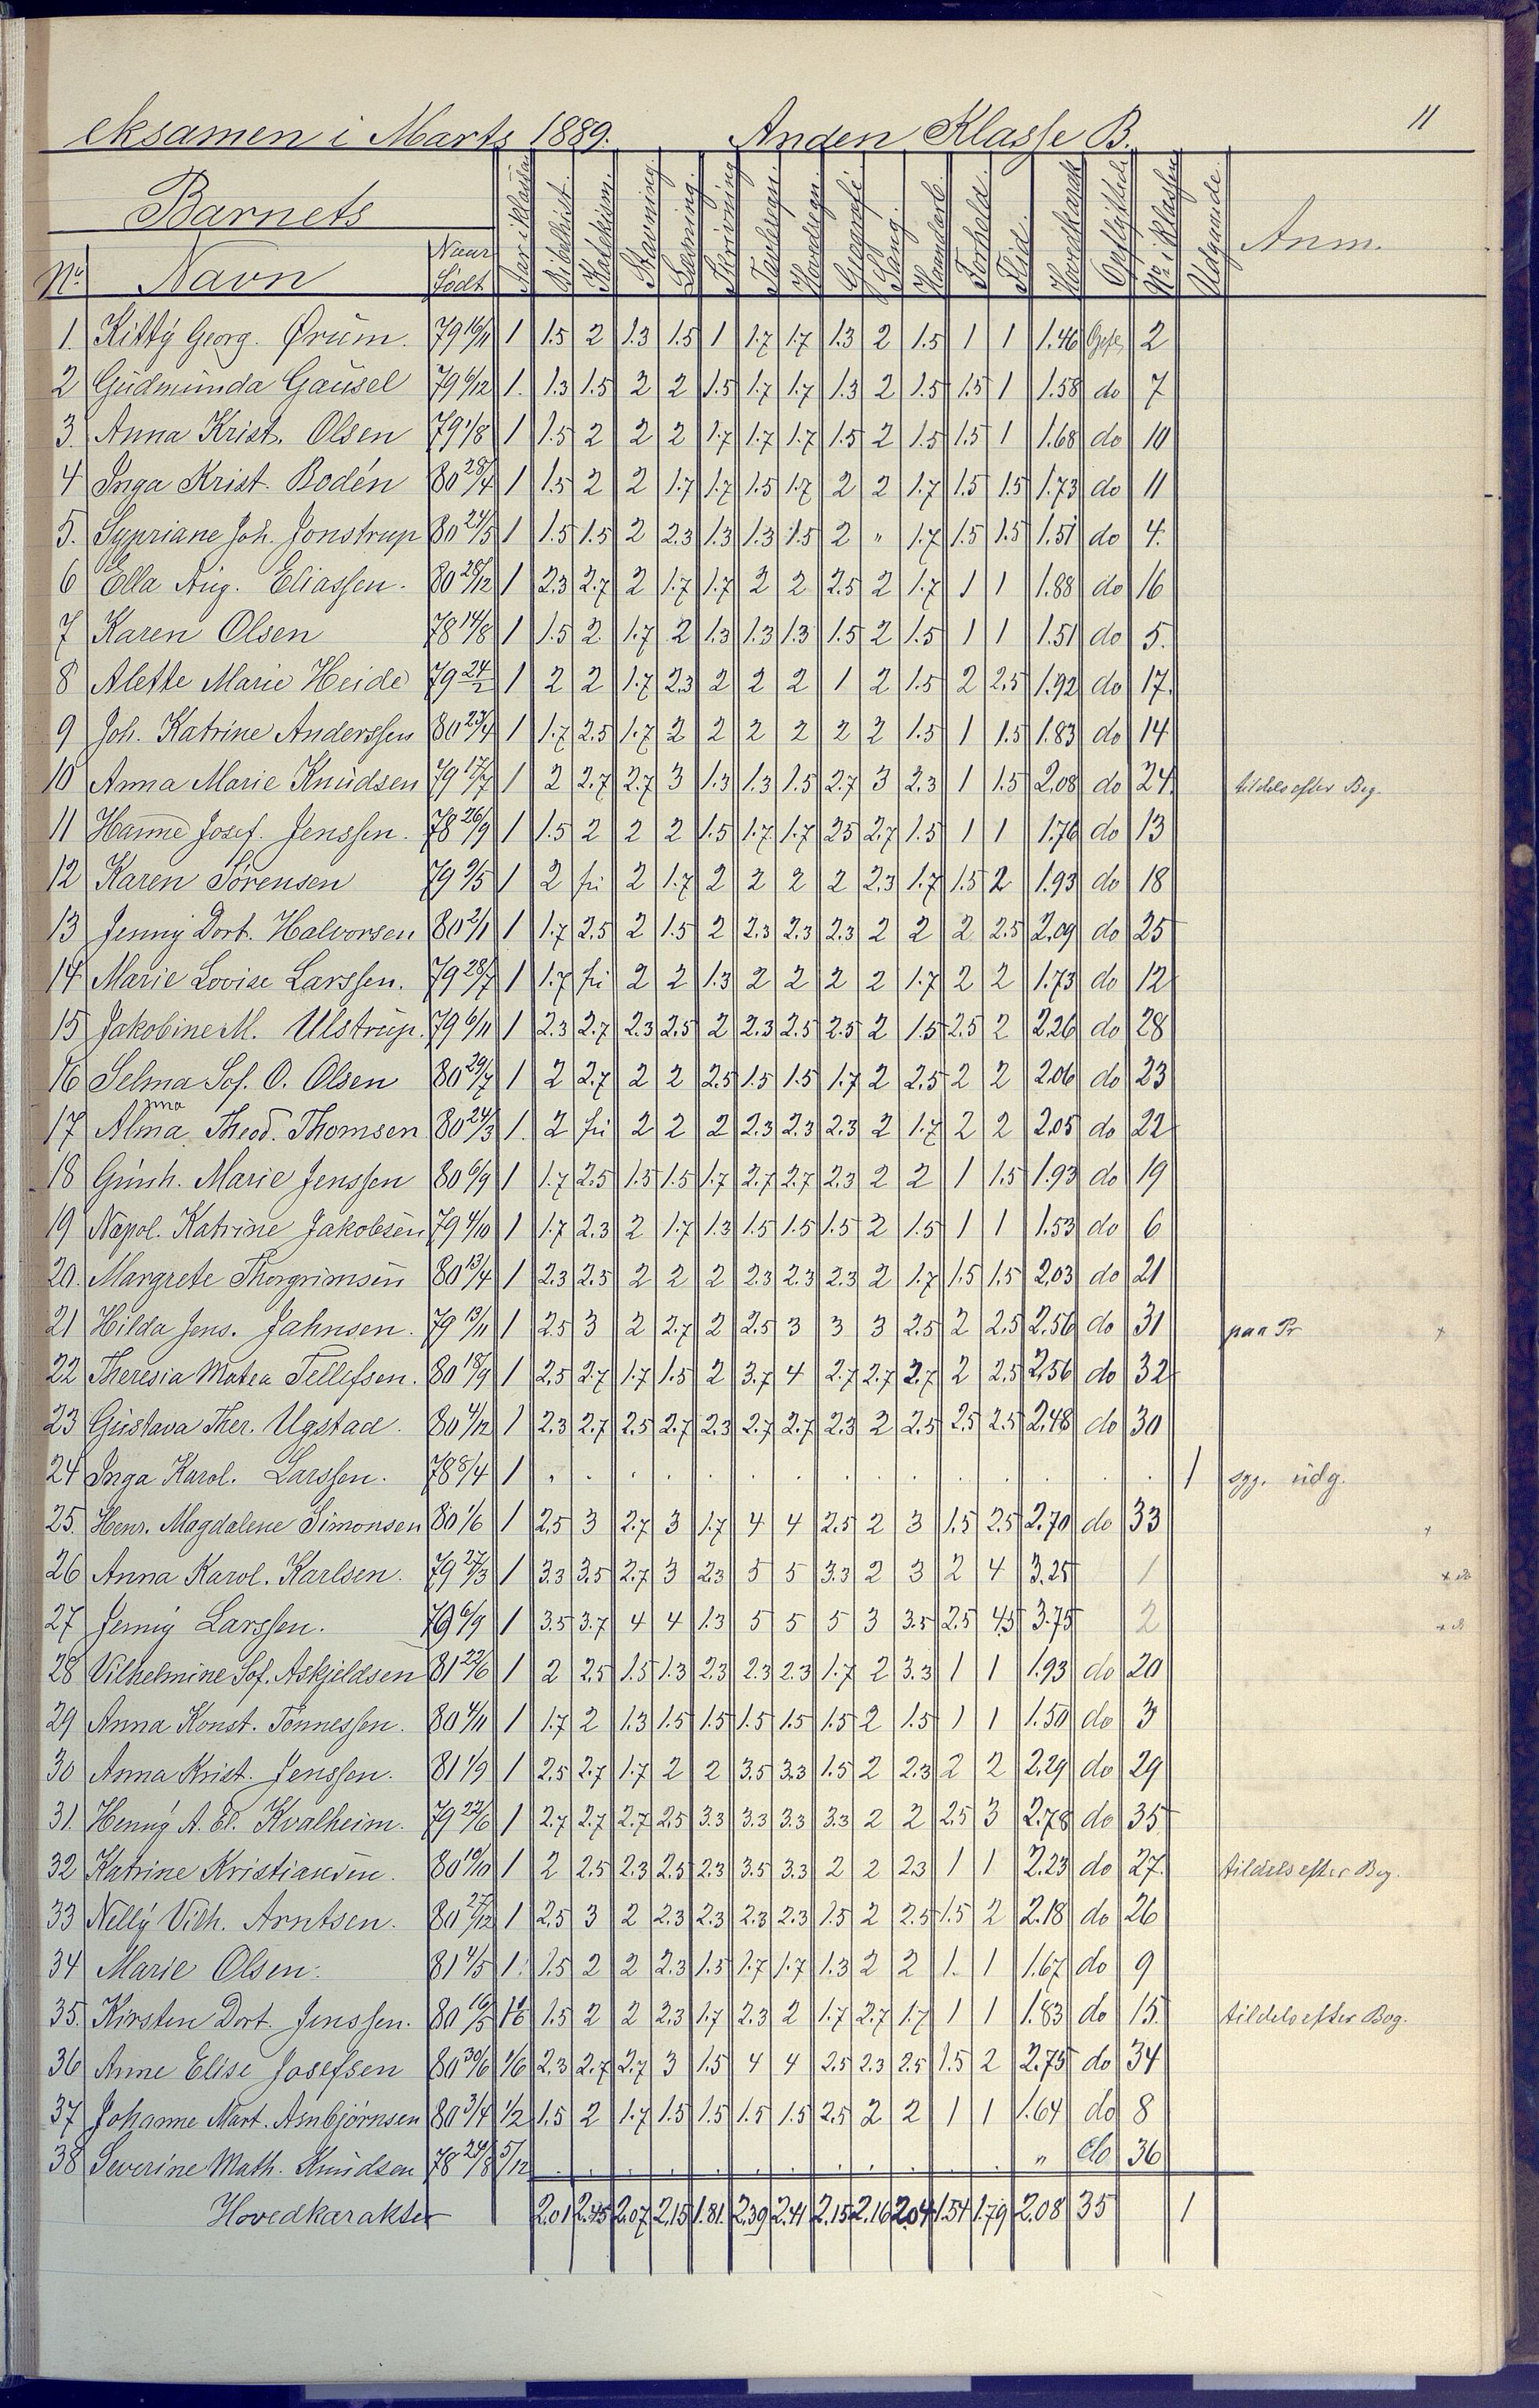 11
eksamen i Marts 1889. Anden Klasse B.
Barnets
No. Navn Naar Født Aar i Klassen Bibelhist. Katekism. Stavning. Læsning. Skrivning Tavleregn. Hovedregn. Geografi Sang. Haandarb. Forhold. Flid. Hovedkarakt Opflyttede No. i Klassen Udgaaede Anm.
1. Kitty Georg. Ørum. 79 16/11 1 1.5 2 1.3 1.5 1 1.7 1.7 1.3 2 1.5 1 1 1.46 2
2 Gudmunda Gausel 79 6/12 1. 1.3 1.5 2 2 1.5 1.7 1.7 1.3 2 1.5 1.5 1 1.58 do 7
3. Anna Krist. Olsen 79 1/8 1 1.5 2 2 2 1.7 1.7 1.7 1.5 2 1.5 1.5 1 1.68 do 10
4 Inga Krist. Bodén 80 28/4 1 1.5 2 2 1.7 1.7 1.5 1.7 2 2 1.7 1.5 1.5 1.73 do 11
5. Sypriane Joh. Jonstrup 80 24/5 1 1.5 1.5 2 2.3 1.3 1.3 1.5 2 " 1.7 1.5 1.5 1.51 do 4.
6 Ella Aug. Eliassen. 80 28/12 1 2.3 2.7 2 1.7 1.7 2 2 2.5 2 1.7 1 1 1.88 do 16
7 Karen Olsen 78 14/8 1 1.5 2 1.7 2 1.3 1.3 1.3 1.5 2 1.5 1 1 1.51 do 5.
8 Alette Marie Heide 79 24/2 1 2 2 1.7 2.3 2 2 2 1 2 1.5 2 2.5 1.92 do 17.
9 Joh. Katrine Anderssen 80 23/4 1 1.7 2.5 1.7 2 2 2 2 2 2 1.5 1 1.5 1.83 do 14
10 Anna Marie Knudsen 79 17/7 1 2 2.7 2.7 3 1.3 1.3 1.5 2.7 3 2.3 1 1.5 2.08 do 24. tildels efter Beg.
11 Hanne Josef. Jenssen. 78 26/9 1 1.5 2 2 2 1.5 1.7 1.7 2.5 2.7 1.5 1 1 1.76 do 13
12 Karen Sørensen 79 9/5 1 2 fri 2 1.7 2 2 2 2 2.3 1.7 1.5 2 1.93 do 18
13 Jenny Dort. Halvorsen 80 2/1 1 1.7 2.5 2 1.5 2 2.3 2.3 2.3 2 2 2 2.5 2.09 do 25
14 Marie Lovise Larssen. 79 28/7 1 1.7 fri 2 2 1.3 2 2 2 2 1.7 2 2 1.73 do 12
15 Jakobine M. Ulstrup. 79 6/11 1 2.3 2.7 2.3 2.5 2 2.3 2.5 2.5 2 1.5 2.5 2 2.26 do 28
16 Selma Sof. O. Olsen 80 29/7 1 2 2.7 2 2 2.5 1.5 1.5 1.7 2 2.5 2 2 2.06 do 23
17 Alma Theod. Thomsen 80 24/3 1. 2 fri 2 2 2 2.3 2.3 2.3 2 1.7 2 2 2.05 do 22
18 Gunh. Marie Jenssen 80 6/9 1 1.7 2.5 1.5 1.5 1.7 2.7 2.7 2.3 2 2 1 1.5 1.93 do 19
19 Napol. Katrine Jakobsen 79 4/10 1 1.7 2.3 2 1.7 1.3 1.5 1.5 1.5 2 1.5 1 1 1.53 do 6
20. Margrete Thorgrimsen 80 13/4 1 2.3 2.5 2 2 2 2.3 2.3 2.3 2 1.7 1.5 1.5 2.03 do 21
21 Hilda Jens. Jahnsen. 79 13/11 1 2.5 3 2 2.7 2 2.5 3 3 3 2.5 2 2.5 2.56 do 31 paa Pr +
22 Theresia Matea Tellefsen. 80 18/9 1 2.5 2.7 1.7 1.5 2 3.7 4 2.7 2.7 2.7 2 2.5 2.56 do 32
23 Gustava Ther. Ugstad. 80 4/12 1 2.3 2.7 2.5 2.7 2.3 2.7 2.7 2.3 2 2.5 2.5 2.5 2.48 do 30
24 Inga Karol. Larssen. 78 8/4 1 . . . . . . . . . . . . . . . 1 syg. udg.
25. Henr. Magdalene Simonsen 80 1/6 1 2.5 3 2.7 3 1.7 4 4 2.5 2 3 1.5 2.5 2.70 do 33 +
26 Anna Karol. Karlsen. 79 27/3 1 3.3 3.5 2.7 3 2.3 5 5 3.3 2 3 2 4 3.25 1 + do
27 Jenny Larssen. 79 6/9 1 3.5 3.7 4 4 1.3 5 5 5 3 3.5 2.5 4.5 3.75 2 + do
28 Vilhelmine Sof. Askjeldsen 81 22/6 1 2 2.5 1.5 1.3 2.3 2.3 2.3 1.7 2 3.3 1 1 1.93 do 20
29 Anna Konst. Tønnessen. 80 4/11 1 1.7 2 1.3 1.5 1.5 1.5 1.5 1.5 2 1.5 1 1 1.50 do 3
30 Anna Krist. Jenssen. 81 1/9 1 2.5 2.7 1.7 2 2 3.5 3.3 1.5 2 2.3 2 2 2.29 do 29
31. Henny A. El. Kvalheim. 79 22/6 1 2.7 2.7 2.7 2.5 3.3 3.3 3.3 3.3 2 2 2.5 3 2.78 do 35
32 Katrine Kristiansen. 80 19/10 1 2 2.5 2.3 2.5 2.3 3.5 3.3 2 2 2.3 1 1 2.23 do 27. tildels efter Beg.
33 Nelly Vilh. Arntsen. 80 27/12 1 2.5 3 2 2.3 2.3 2.3 2.3 1.5 2 2.5 1.5 2 2.18 do 26
34 Marie Olsen. 81 4/5 1. 1.5 2 2 2.3 1.5 1.7 1.7 1.3 2 2 1. 1 1.67 do 9
35. Kirsten Dort. Jenssen. 80 16/5 1/6 1.5 2 2 2.3 1.7 2.3 2 1.7 2.7 1.7 1 1 1.83 do 15. tildels efter Beg.
36 Anne Elise Josefsen 80 30/6 1/6 2.3 2.7 2.7 3 1.5 4 4 2.5 2.3 2.5 1.5 2 2.75 do 34
37 Johanne Mart. Asnbjørnsen 80 3/4 1/2 1.5 2 1.7 1.5 1.5 1.5 1.5 2.5 2 2 1 1 1.64 do 8
38 Severine Math. Knudsen 78 24/8 5/12 . . . . . . . . . . . . " do 36
Hovedkarakter 2.01 2.45 2.07 2.15 1.81. 2.39 2.41 2.15 2.16 2.04 1.54 1.79 2.08 35 1